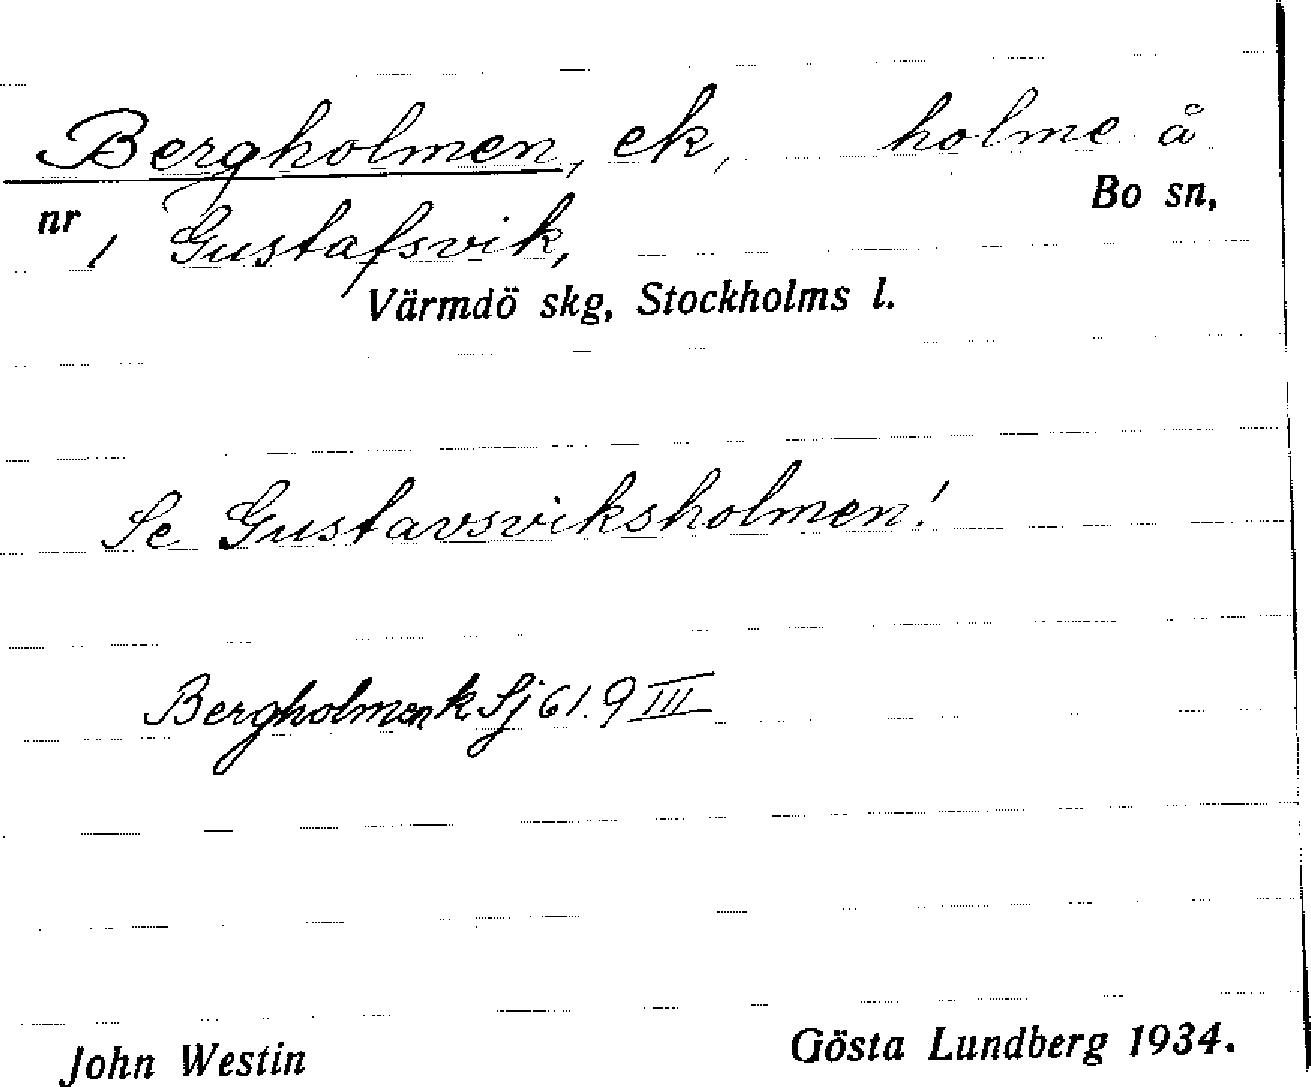 Bergholmen, ek, holme å
Bo sn,
nr 1 Gustafsvik,
Värmdö skg, Stockholms l.
Se Gustavsviksholmen!
Bergholmen k Sj 61. 9 III
John Westin Gösta Lundberg 1934.